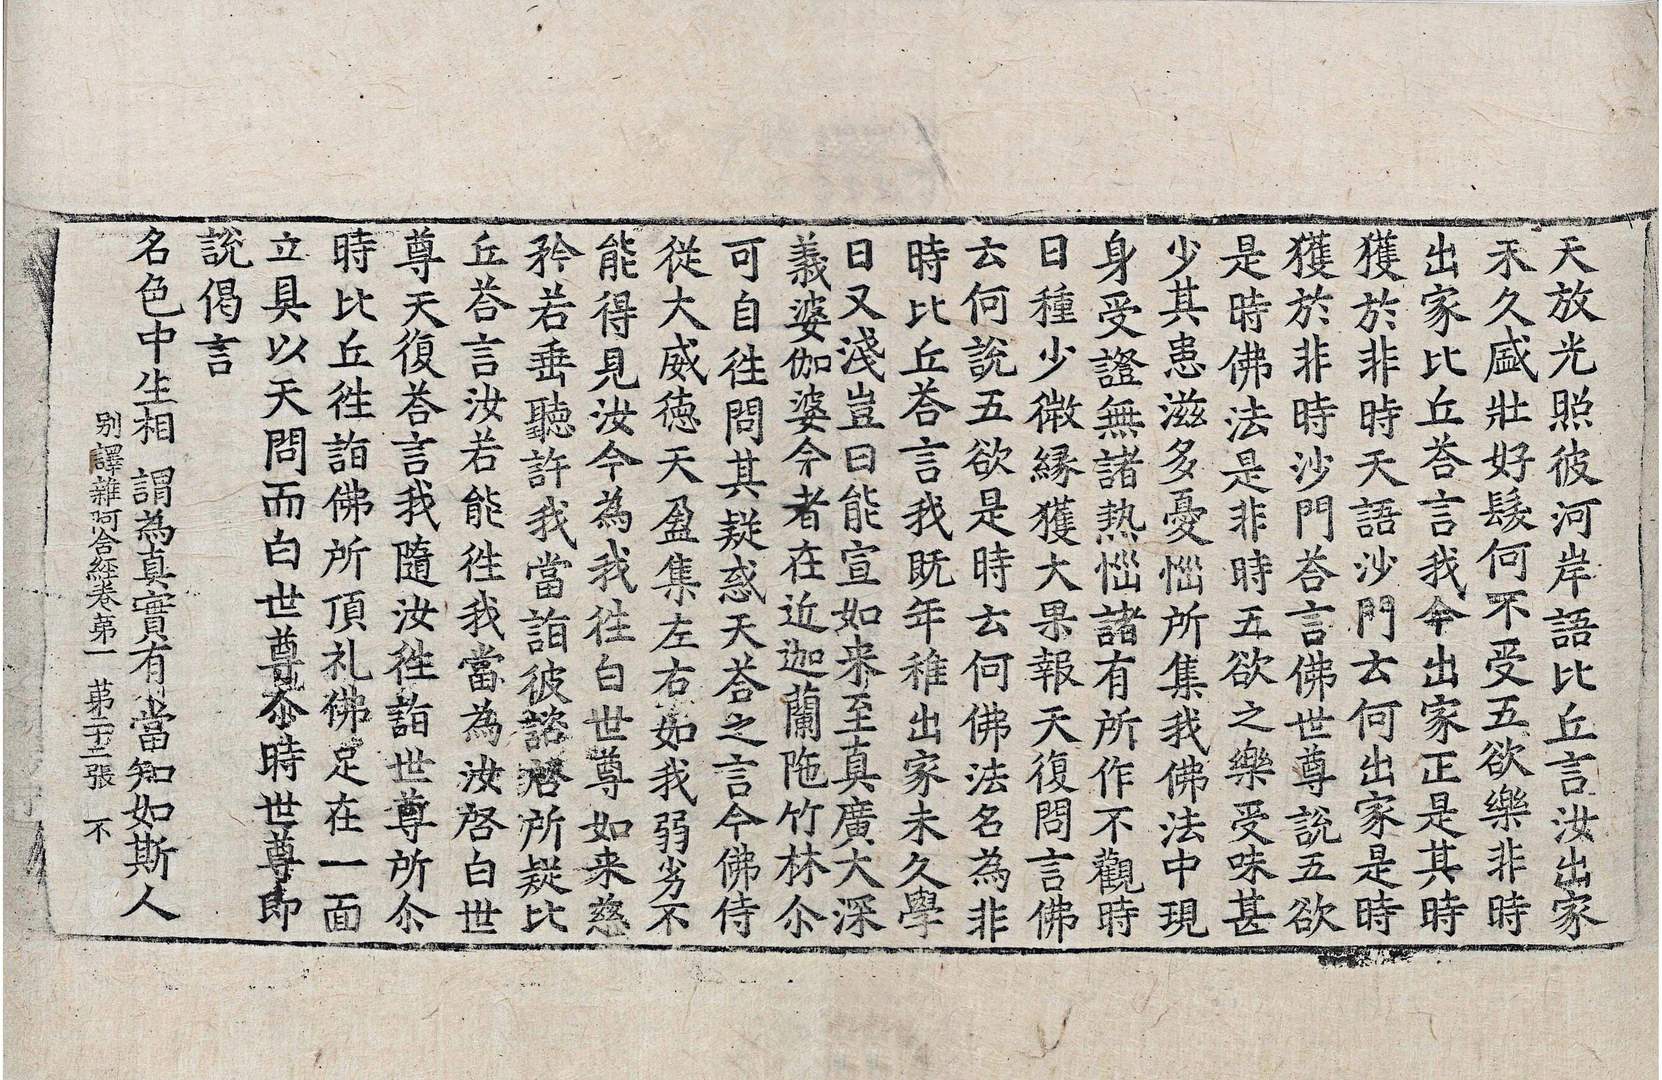 天放光照彼河岸語比丘言汝出家
未久盛壯好髮何不受五欲樂非時
出家比丘荅言我今出家正是其時
獲於非時天語沙門云何出家是時
獲於非時沙門荅言佛世尊說五欲
是時佛法是非時五欲之樂受味甚
少其患滋多憂惱所集我佛法中現
身受證無諸熱惱諸有所作不觀時
日種少微緣獲大果報天復問言佛
云何說五欲是時云何佛法名為非
時比丘荅言我既年稚出家未久學
日又淺豈曰能宣如来至真廣大深
義婆伽婆今者在近迦蘭陁竹林尒
可自往問其疑惑天荅之言今佛侍
從大威德天盈集左右如我弱劣不
能得見汝今為我往白世尊如来慈
矜若垂聽許我當詣彼諮啓所疑比
丘荅言汝若能往我當為汝啓白世
尊天復荅言我隨汝往詣世尊所尒
時比丘往詣佛所頂礼佛足在一面
立具以天問而白世尊尒時世尊即
說偈言
名色中生相　謂為真實有　當知如斯人
別譯雜阿含經卷第一　第二十二張　不